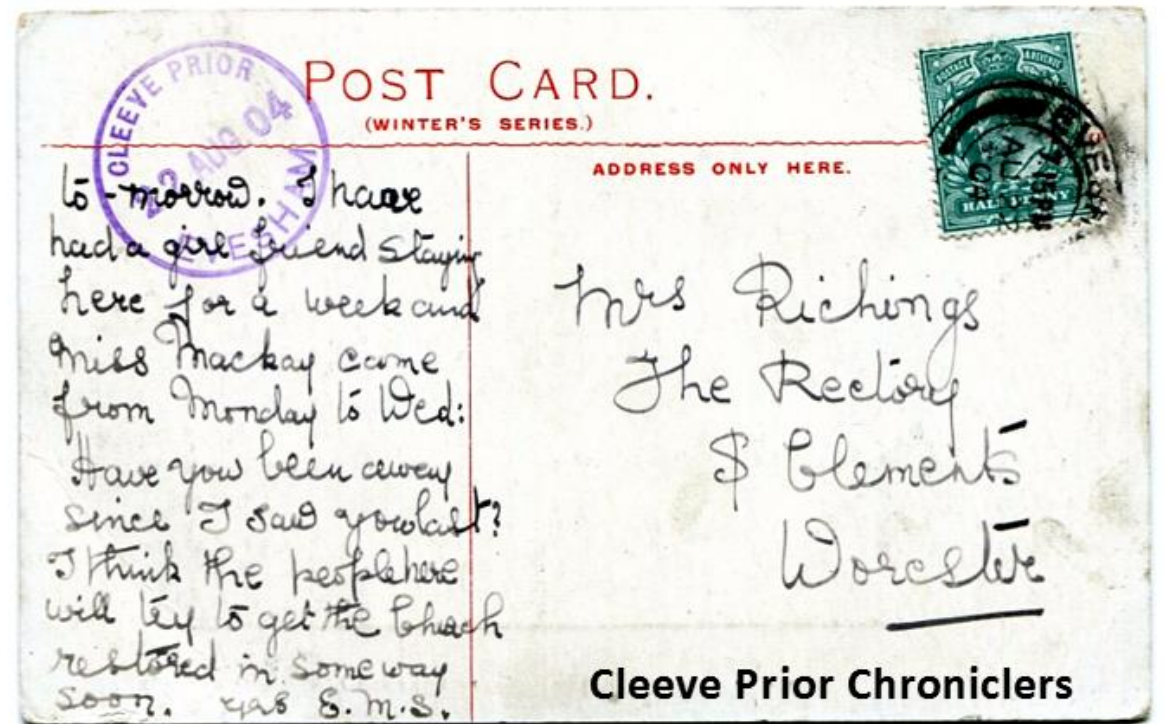 POST CARD.
(WINTER'S SERIES.)
CLEEVE PRIOR
22 AUG. 04
EVESHAM
ADDRESS ONLY HERE.
POSTAGE & REVENUE
HALFPENNY
to-morrow. I have
had a girl friend staying
here for a week and
Miss Mackay came
from Monday to Wed:
Have you been away
since I saw you last?
I think the people here
will try to get the Church
restored in some way
soon. yrs E.M.S.
Mrs Richings
The Rectory
S Clements
Worcester
Cleeve Prior Chroniclers